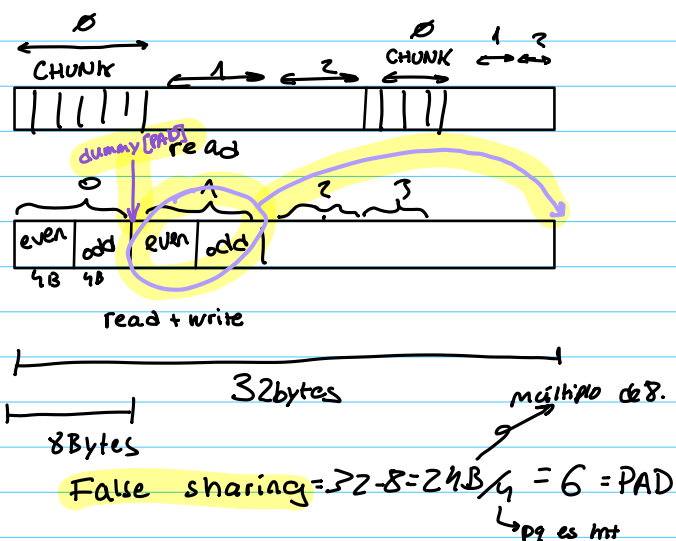 0 0
CHUNK 1 2 CHUNK 1 2
dummy[PAD] read
0 1 2 3
even odd even odd
4B 4B
read + write
32bytes
múltiplo de 8.
8Bytes
False sharing = 32-8 = 24B/4 = 6 = PAD
pq es int